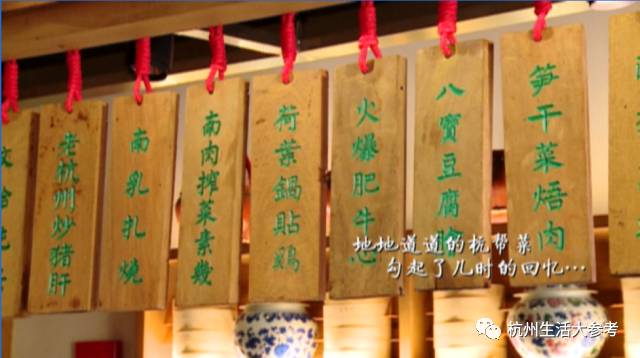 老杭州炒猪肝
南乳扎燒
南肉搾菜素幾
荷葉鍋貼鴡
火爆肥牛
八寶豆腐
笋干菜焐肉
地地道道的杭帮菜
勾起了儿时的回忆…
杭州生活大参考